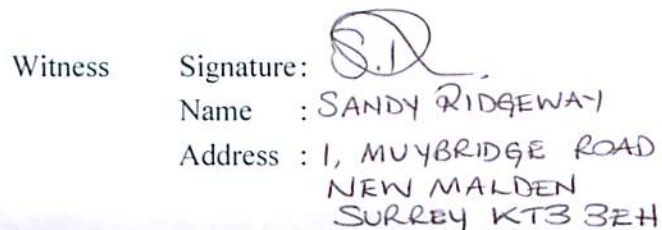 Witness Signature: S.R.
Name : SANDY RIDGEWAY
Address : 1, MUYBRIDGE ROAD
NEW MALDEN
SURREY KT3 3EH